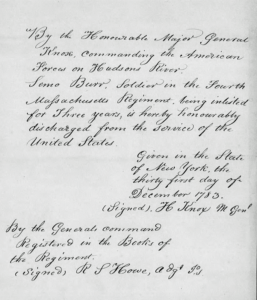 "By the Honourable Major General
Knox, Commanding the American
Forces on Hudsons River.
Semo Burr, Soldier in the Fourth
Massachusetts Regiment, being inlisted
for Three years, is hereby honourably
discharged from the Service of the
United States.
Given in the State
of New York, the
thirty first day of
December 1783.
(Signed), H Knox M Genl
By the Generals command
Registered in the Books of
the Regiment.
(Signed) R S Howe, Adgt